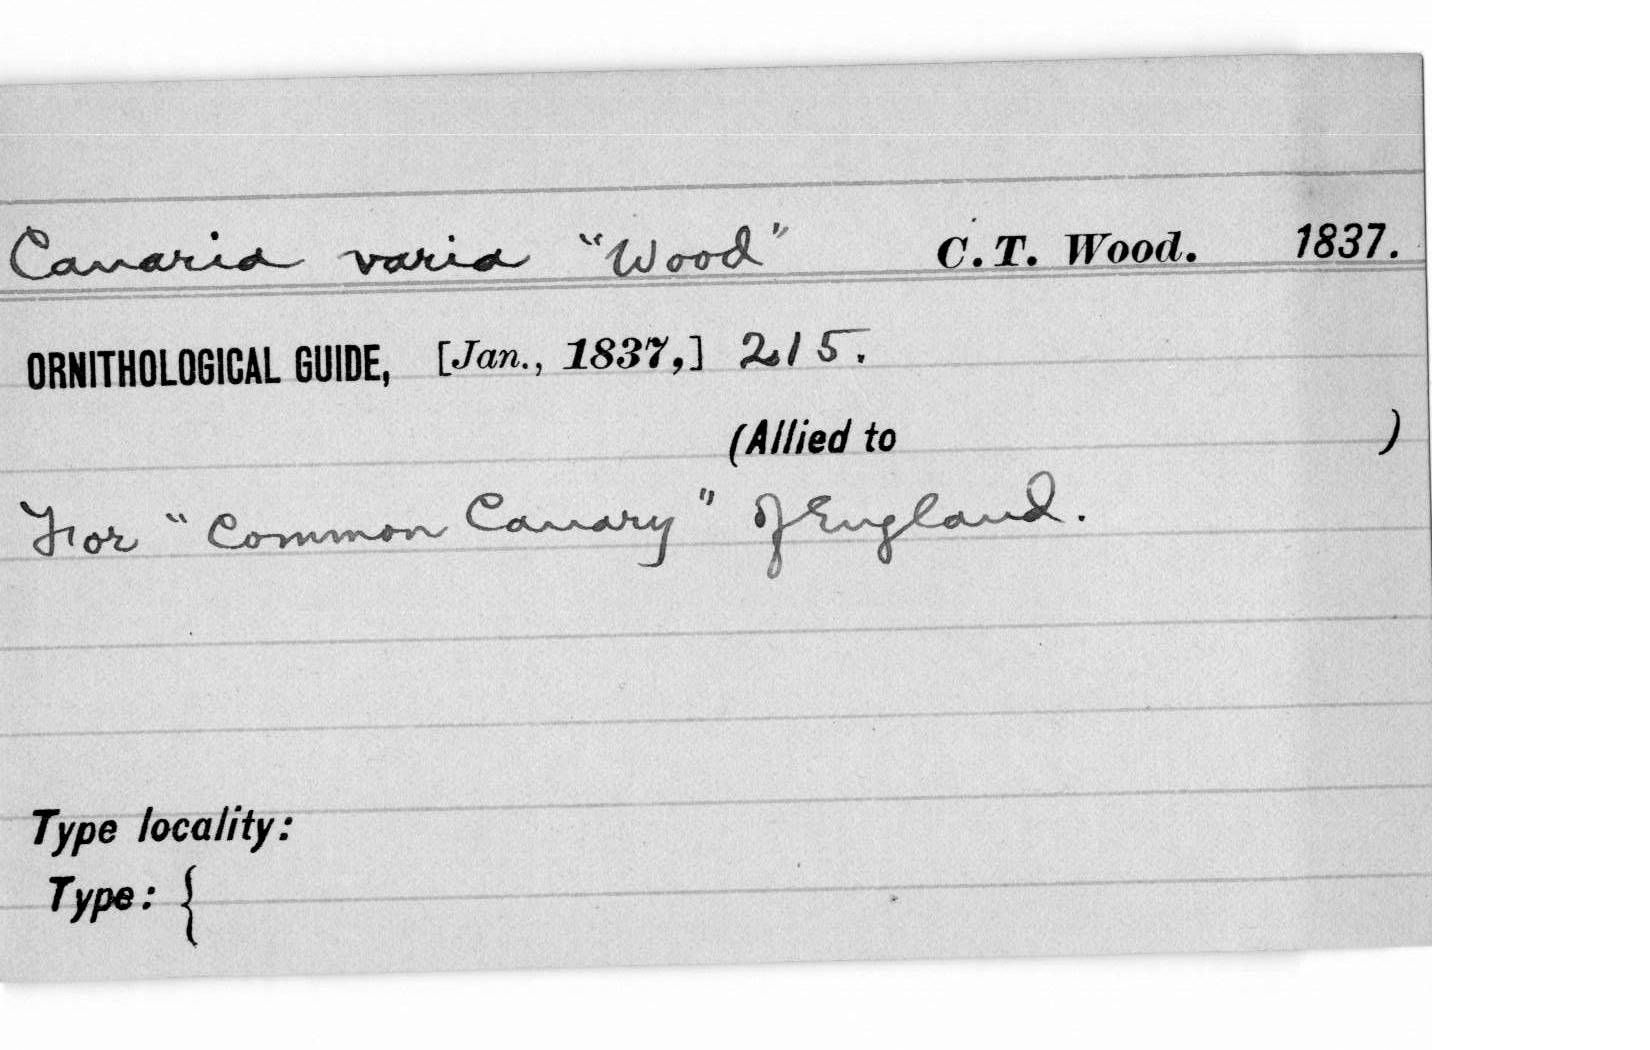 Canaria varia "Wood" C. T. Wood. 1837.
ORNITHOLOGICAL GUIDE, [Jan., 1837,] 215.
(Allied to )
For "Common Canary" of England.
Type locality:
Type: {